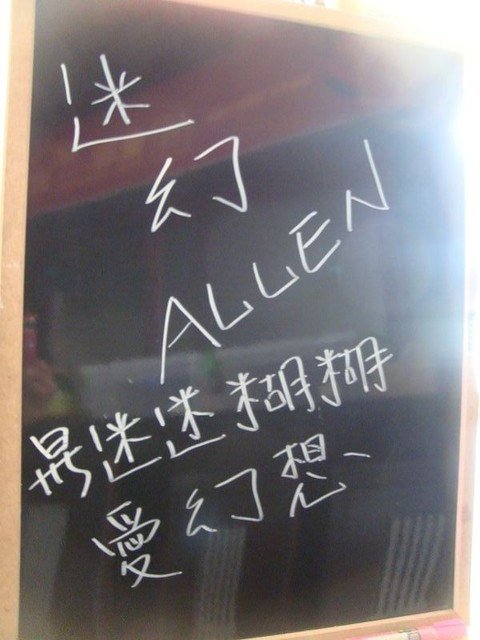 迷
幻
ALLEN
迷迷糊糊
愛幻想